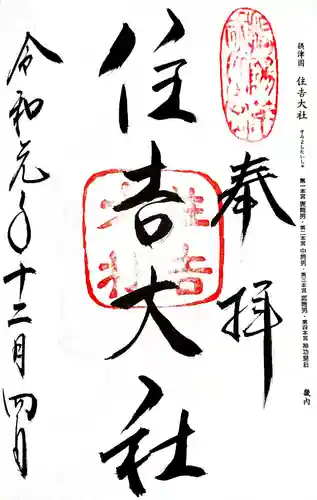 摂津国 住吉大社
すみよしたいしゃ
第一本宮 底筒男・第二本宮 中筒男・第三本宮 表筒男・第四本宮 神功皇后
畿内
奉拝
住吉大社
住吉大社
令和元年十二月四日